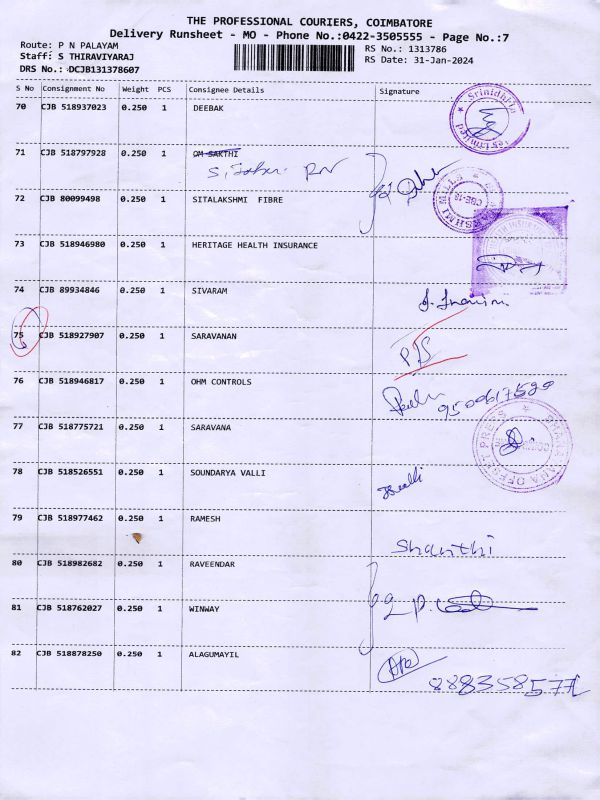 THE PROFESSIONAL COURIERS, COIMBATORE
Delivery Runsheet - MO - Phone No.:0422-3505555 - Page No.:7
Route: P N PALAYAM
RS No.: 1313786
Staff: S THIRAVIYARAJ
RS Date: 31-Jan-2024
DRS No.: DCJB131378607
S No Consignment No Weight PCS Consignee Details Signature
70 CJB 518937023 0.250 1 DEEBAK
71 CJB 518797928 0.250 1 OM SAKTHI
72 CJB 80099498 0.250 1 SITALAKSHMI FIBRE
73 CJB 518946980 0.250 1 HERITAGE HEALTH INSURANCE
74 CJB 89934846 0.250 1 SIVARAM
75 CJB 518927907 0.250 1 SARAVANAN
76 CJB 518946817 0.250 1 OHM CONTROLS
9500617520
77 CJB 518775721 0.250 1 SARAVANA
78 CJB 518526551 0.250 1 SOUNDARYA VALLI
79 CJB 518977462 0.250 1 RAMESH
Shanthi
80 CJB 518982682 0.250 1 RAVEENDAR
81 CJB 518762027 0.250 1 WINWAY
82 CJB 518878250 0.250 1 ALAGUMAYIL